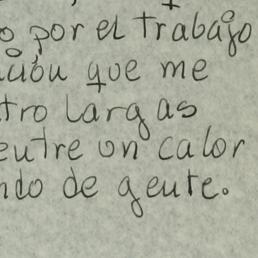 o por el trabajo
ción que me
tro largas
entre un calor
ndo de gente.